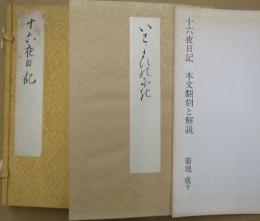 十六夜日記
いさよひの日記
十六夜日記 本文翻刻と解説
菊池